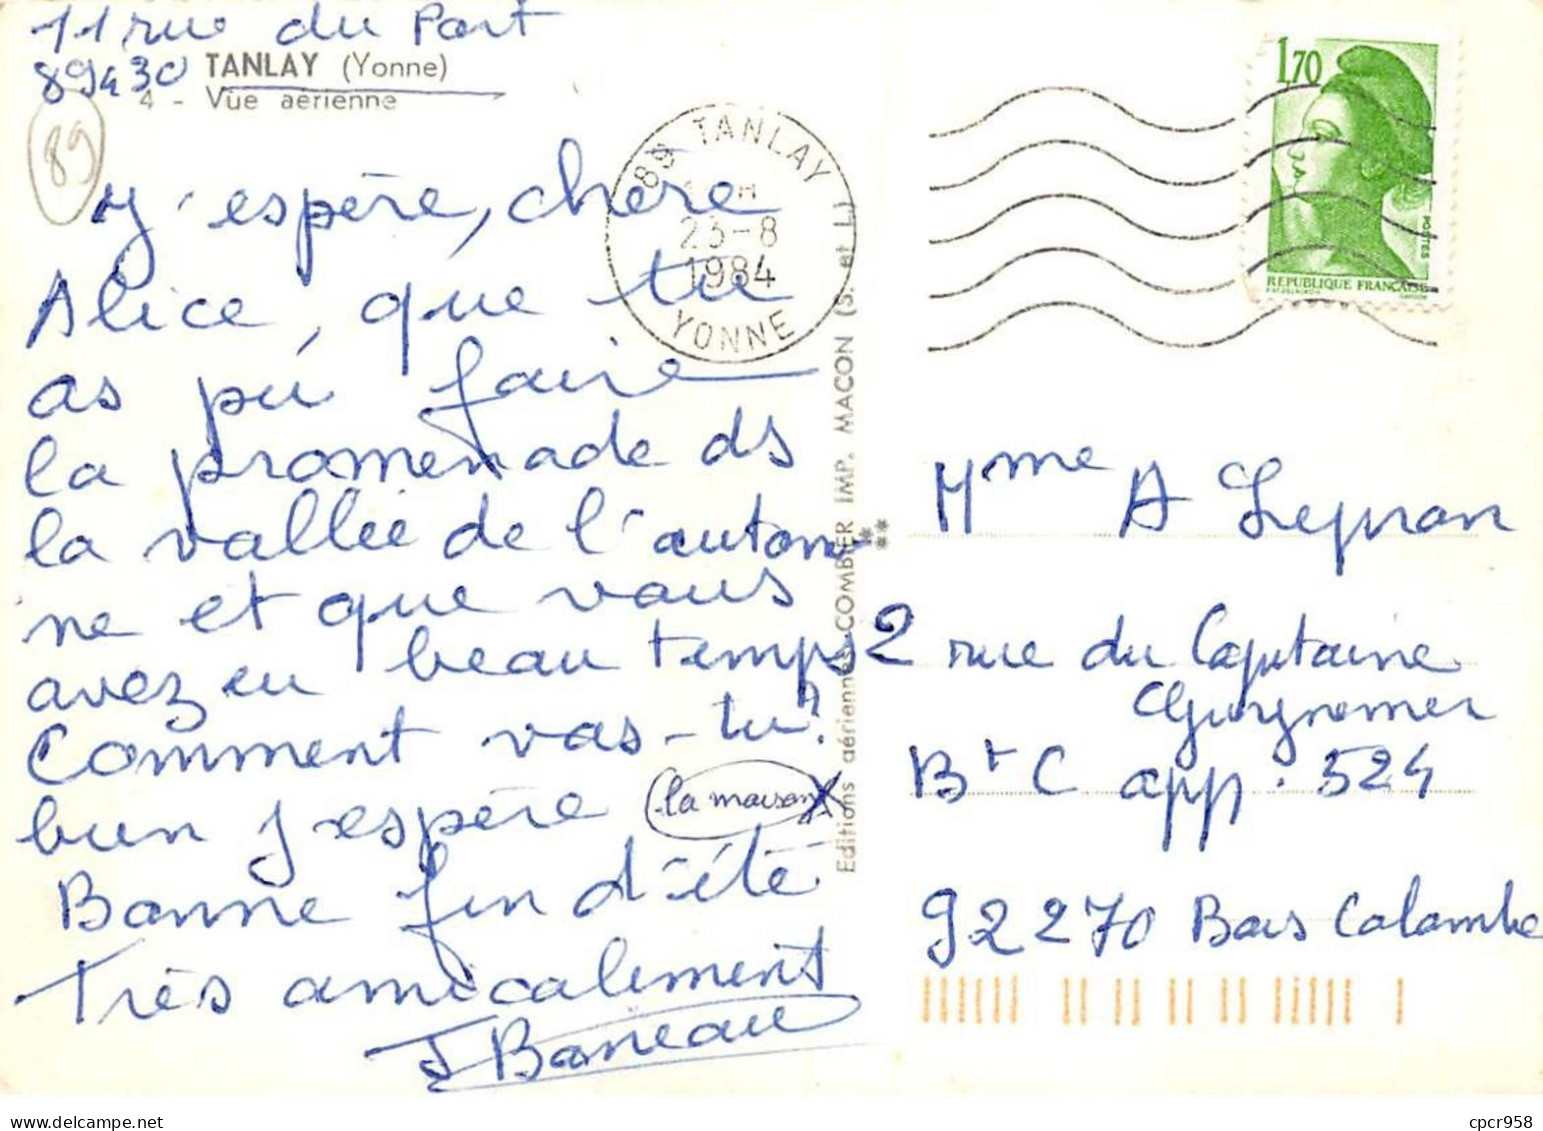 11 rue du Port
89430 TANLAY (Yonne)
4 - Vue aérienne
89
J'espère, chère
Alice, que tu
as pu faire
la promenade ds
la vallée de l'autom-
ne et que vous
avez eu beau temps
Comment vas-tu?
bien j'espère (la maison X
Bonne fin d'été
Très amicalement
J Baneau
89 TANLAY
H
23-8
1984
YONNE
Editions aériennes COMBIER IMP. MACON (S. et L.)
1,70
POSTES
REPUBLIQUE FRANÇAISE
Mme A Lepron
2 rue du Capitaine
Guynemer
Bt C app. 524
92270 Bois Colombe
cpcr958